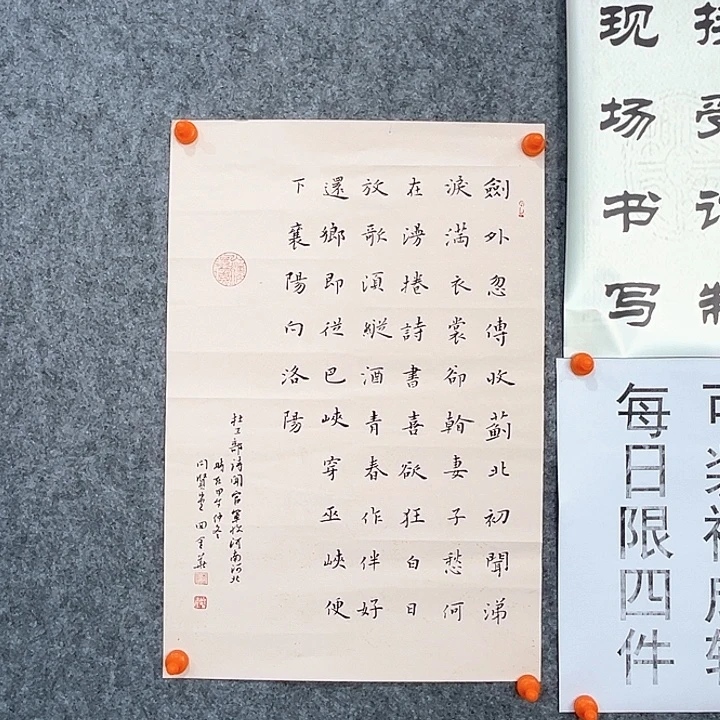 劍外忽傳收薊北初聞涕
淚滿衣裳卻看妻子愁何
在漫捲詩書喜欲狂白日
放歌湏縱酒青春作伴好
還鄉即從巴峽穿巫峽便
下襄陽向洛陽
杜工部詩聞官軍收河南河北
時在甲午仲冬
问賢堂
现场书写
每日限四件